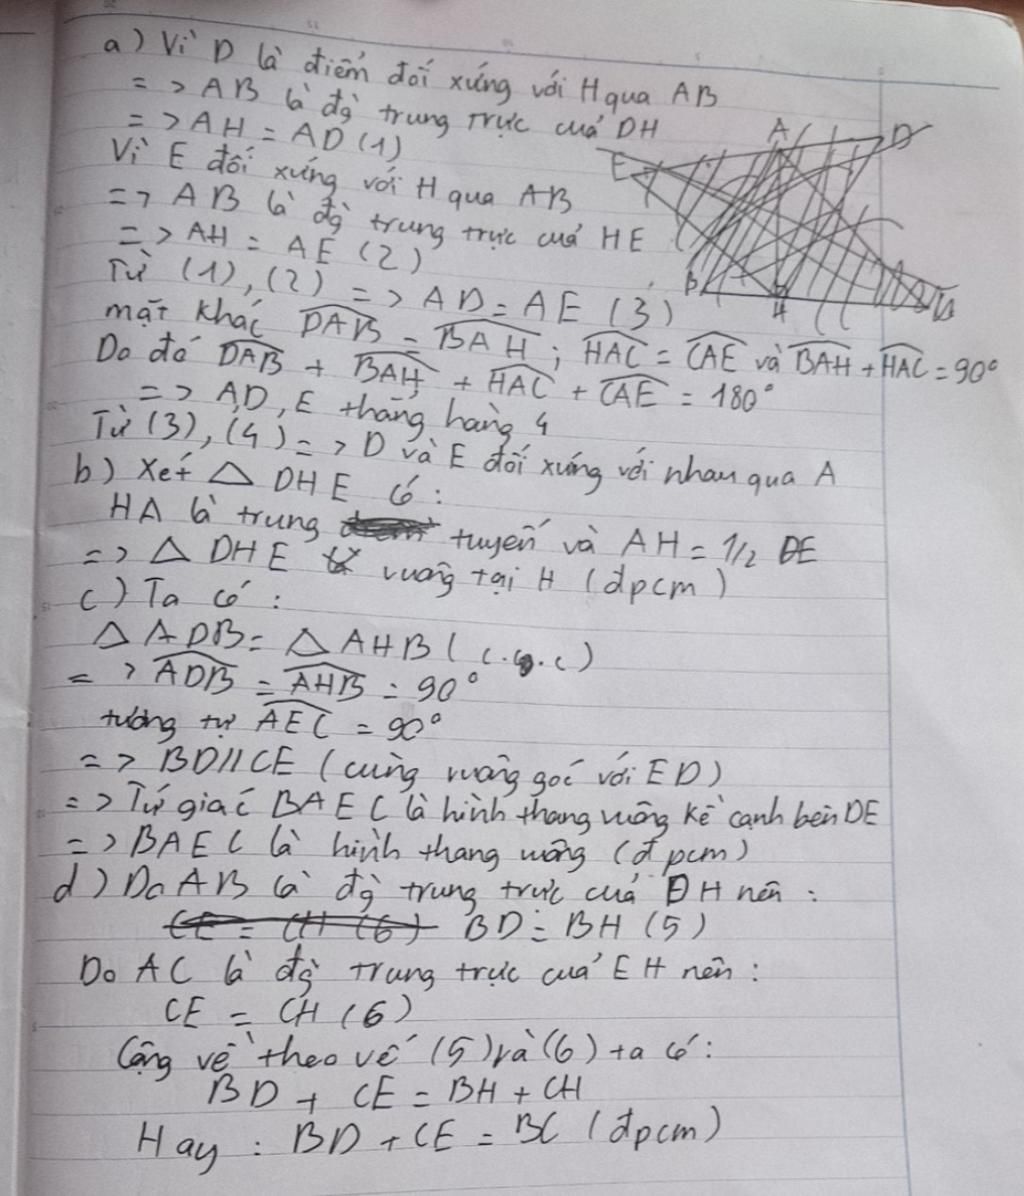 a) Vì D là điểm đối xứng với H qua AB
=> AB là đg trung trực cuả DH
=> AH = AD (1)
Vì E đối xứng với H qua AB
=> AB là đg trung trực cuả HE
=> AH = AE (2)
Từ (1), (2) => AD = AE (3)
mặt khác \widehat{DAB} = \widehat{BAH} ; \widehat{HAC} = \widehat{CAE} và \widehat{BAH} + \widehat{HAC} = 90°
Do đó \widehat{DAB} + \widehat{BAH} + \widehat{HAC} + \widehat{CAE} = 180°
=> AD, E thẳng hàng 4
Từ (3), (4) => D và E đối xứng với nhau qua A
b) Xét △ DHE có :
HA là trung tuyến và AH = 1/2 DE
=> △ DHE vuông tại H (đpcm)
c) Ta có :
△ ADB = △ AHB ( c.g.c)
=> \widehat{ADB} = \widehat{AHB} = 90°
tương tự \widehat{AEC} = 90°
=> BD // CE (cùng vuông goć với ED)
=> Tứ giác BAEC là hình thang vuông kề cạnh bên DE
=> BAEC là hình thang vuông (đpcm)
d) Do AB là đg trung trực cuả DH nên :
CE = CH (6) BD = BH (5)
Do AC là đg trung trực cuả EH nên :
CE = CH (6)
Cộng vế theo vế (5) và (6) ta có :
BD + CE = BH + CH
Hay : BD + CE = BC (đpcm)
A
D
E
B
H